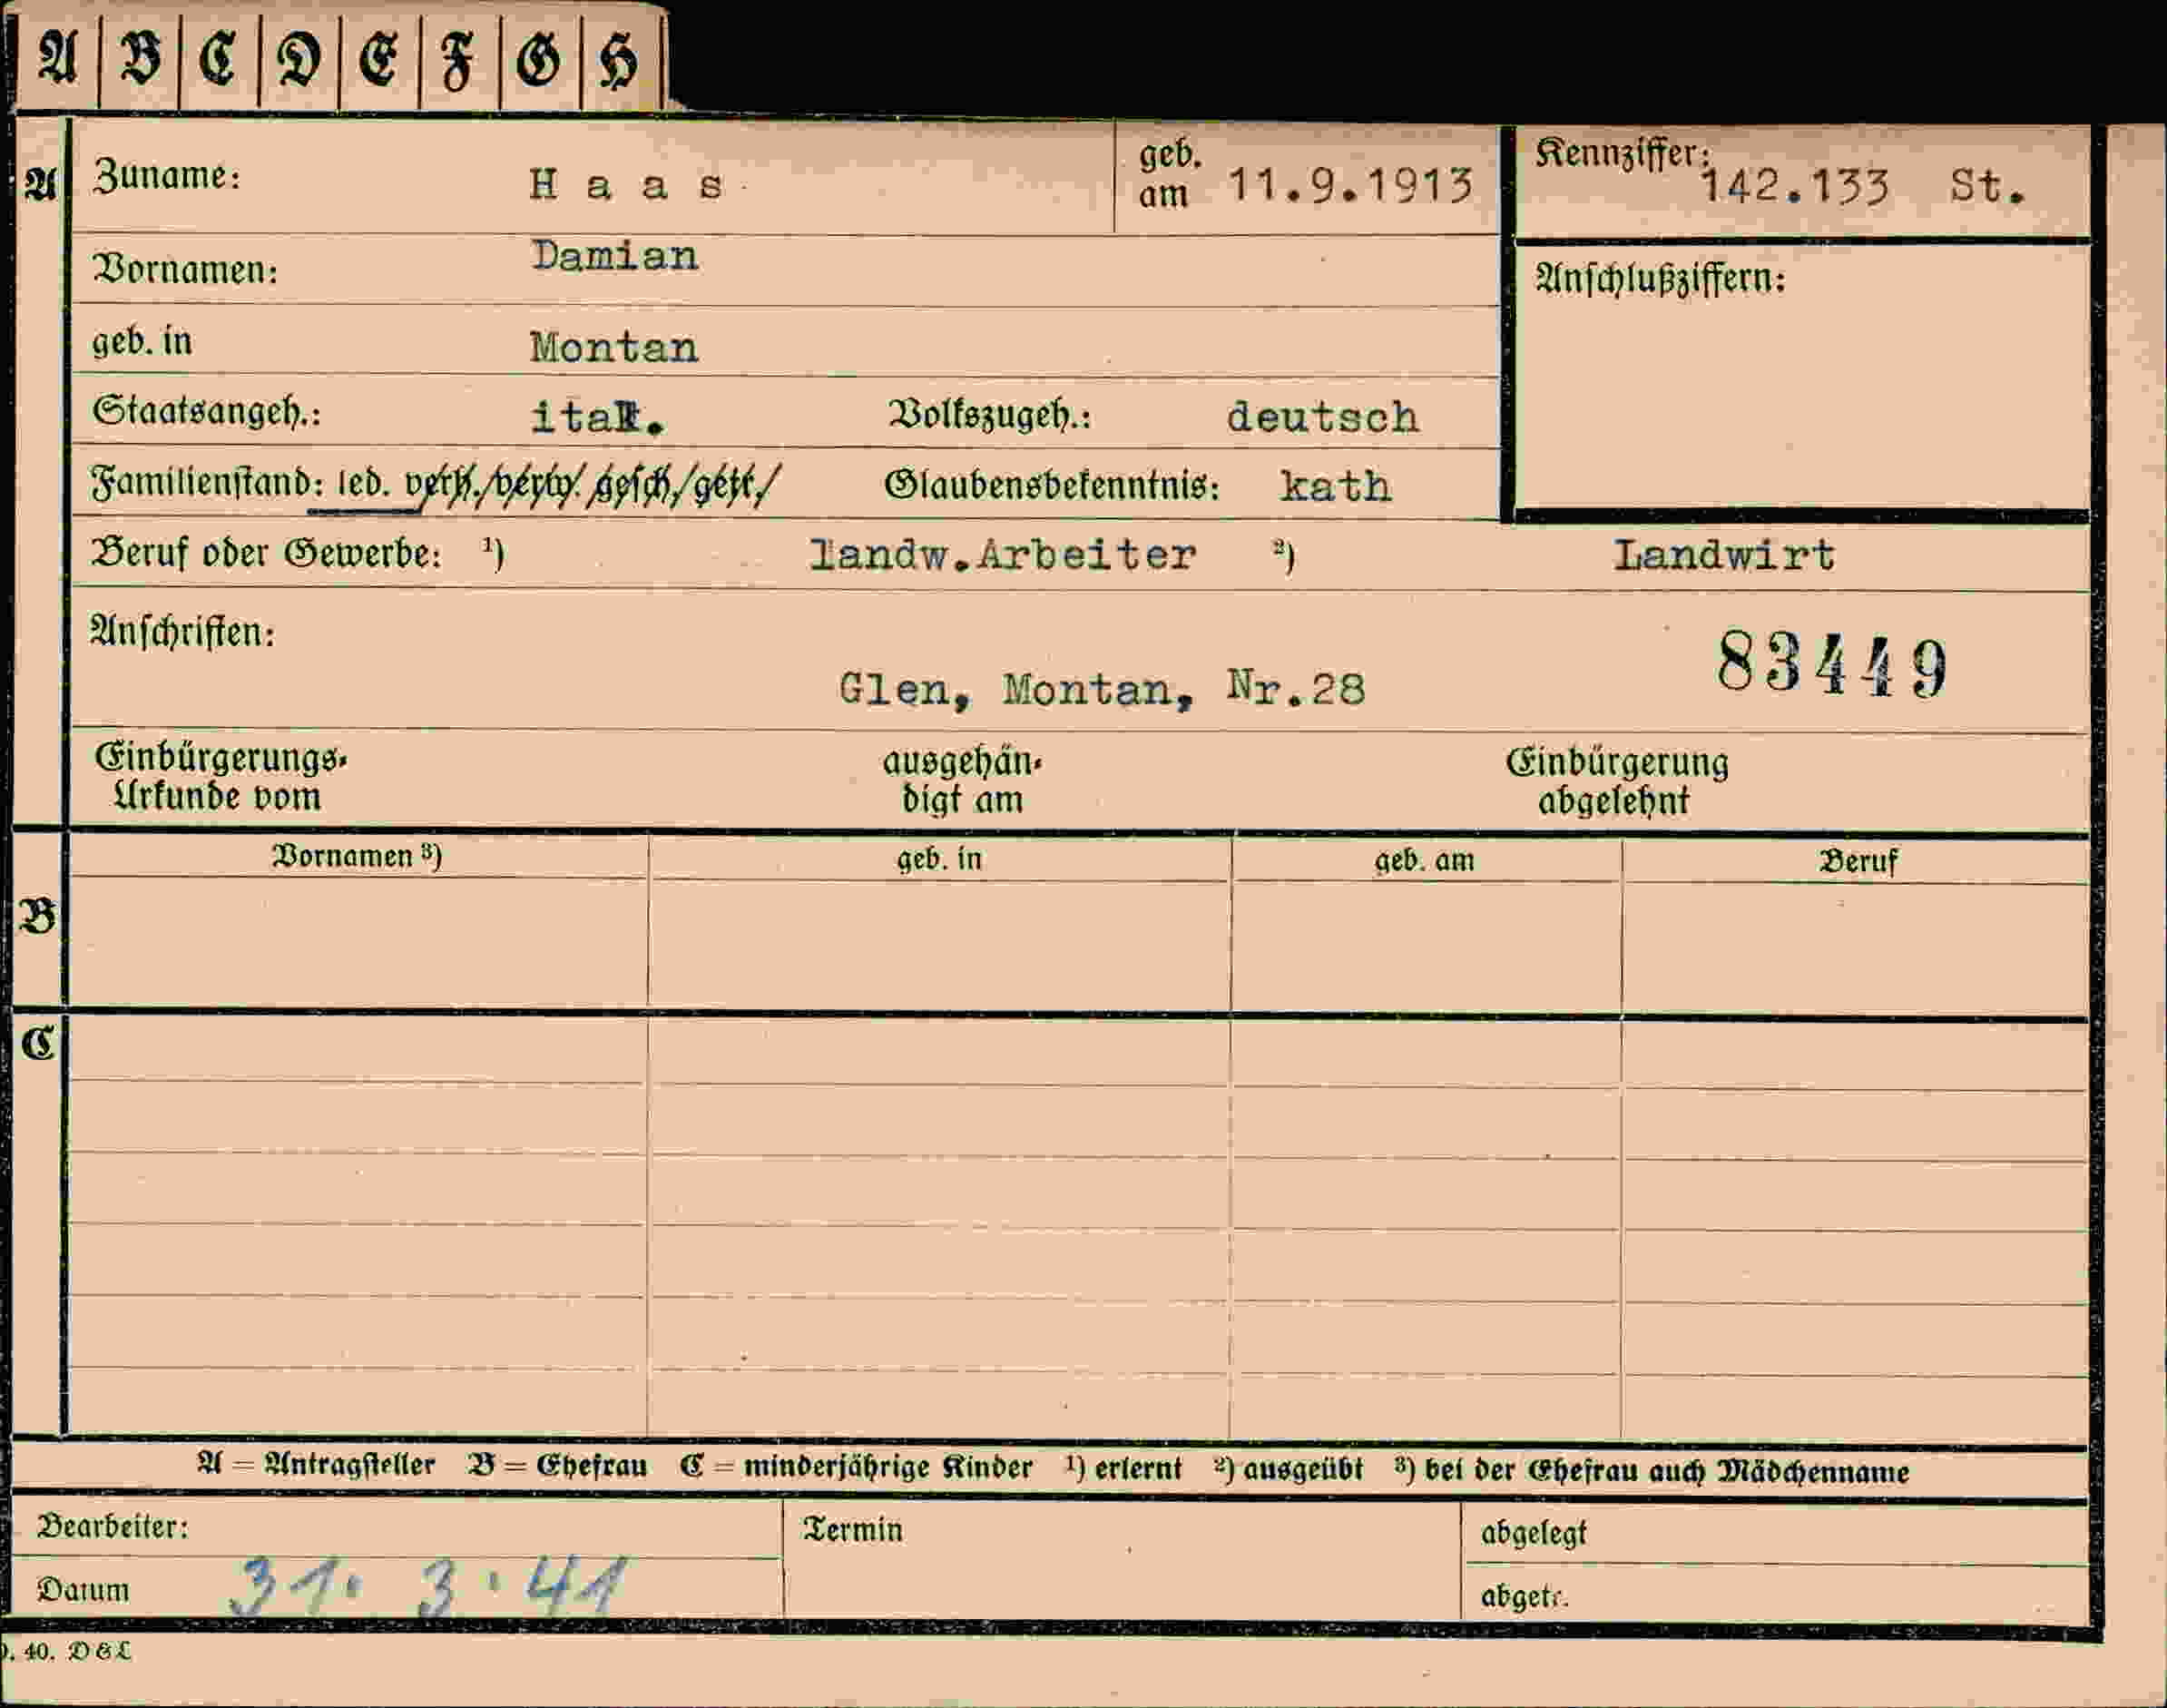 A B C D E F G H
A Zuname: Haas geb. am 11.9.1913 Kennziffer: 142.133 St.
Vornamen: Damian Anschlußziffern:
geb. in Montan
Staatsangeh.: ital. Volkszugeh.: deutsch
Familienstand: led. verh./verw./gesch./getr./ Glaubensbekenntnis: kath
Beruf oder Gewerbe: ¹) landw.Arbeiter ²) Landwirt
Anschriften:
83449
Glen, Montan, Nr.28
Einbürgerungs- ausgehän- Einbürgerung
Urkunde vom digt am abgelehnt
Vornamen ³) geb. in geb. am Beruf
B
C
A = Antragsteller B = Ehefrau C = minderjährige Kinder ¹) erlernt ²) ausgeübt ³) bei der Ehefrau auch Mädchenname
Bearbeiter: Termin abgelegt
Datum 31. 3. 41 abgetr.
40. DGL